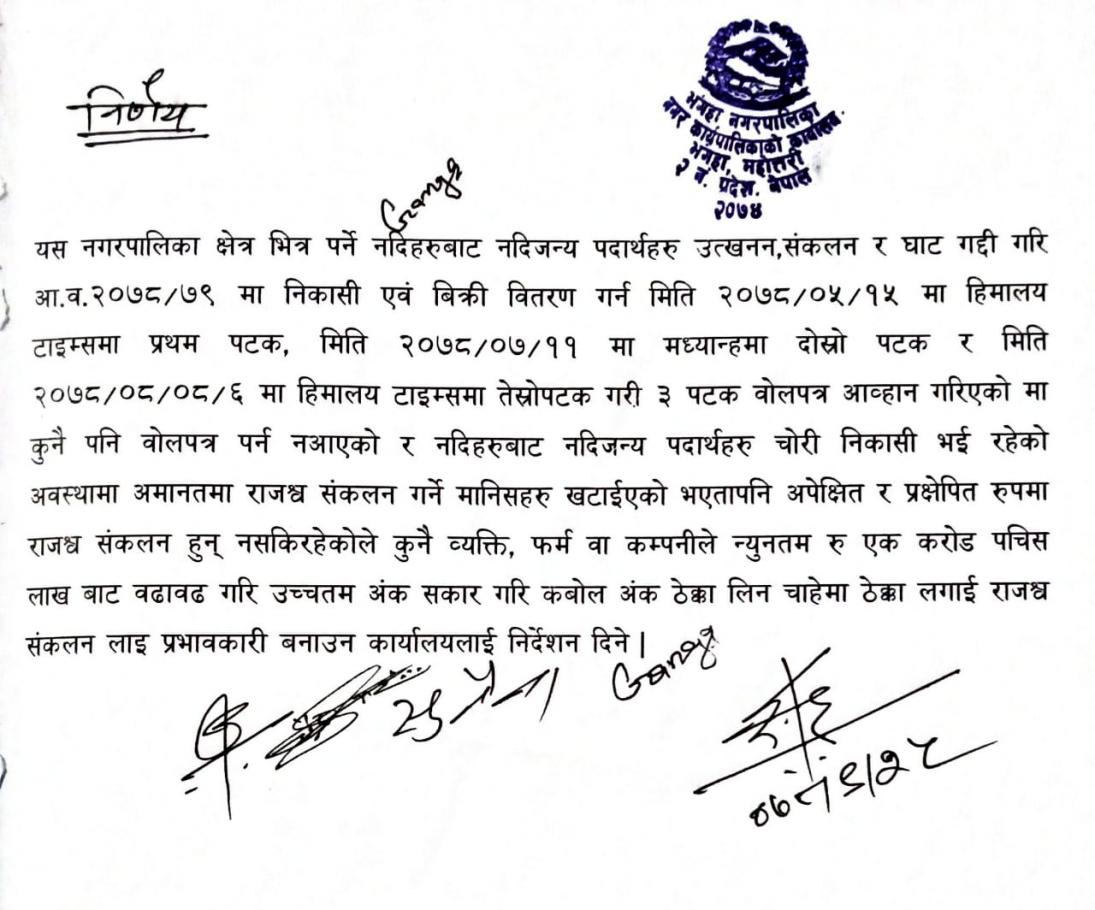 निर्णय
भंगहा नगरपालिका
नगर कार्यपालिकाको कार्यालय
भंगहा, महोत्तरी
२ नं. प्रदेश, नेपाल
२०७४
Ganga
यस नगरपालिका क्षेत्र भित्र पर्ने नदिहरुबाट नदिजन्य पदार्थहरु उत्खनन,संकलन र घाट गद्दी गरि
आ.व.२०७८/७९ मा निकासी एवं बिक्री वितरण गर्न मिति २०७८/०५/१५ मा हिमालय
टाइम्समा प्रथम पटक, मिति २०७८/०७/११ मा मध्यान्हमा दोस्रो पटक र मिति
२०७८/०८/०८/६ मा हिमालय टाइम्समा तेस्रोपटक गरी ३ पटक वोलपत्र आव्हान गरिएको मा
कुनै पनि वोलपत्र पर्न नआएको र नदिहरुबाट नदिजन्य पदार्थहरु चोरी निकासी भई रहेको
अवस्थामा अमानतमा राजश्व संकलन गर्ने मानिसहरु खटाईएको भएतापनि अपेक्षित र प्रक्षेपित रुपमा
राजश्व संकलन हुन् नसकिरहेकोले कुनै व्यक्ति, फर्म वा कम्पनीले न्युनतम रु एक करोड पचिस
लाख बाट वढावढ गरि उच्चतम अंक सकार गरि कबोल अंक ठेक्का लिन चाहेमा ठेक्का लगाई राजश्व
संकलन लाइ प्रभावकारी बनाउन कार्यालयलाई निर्देशन दिने |
Ganga